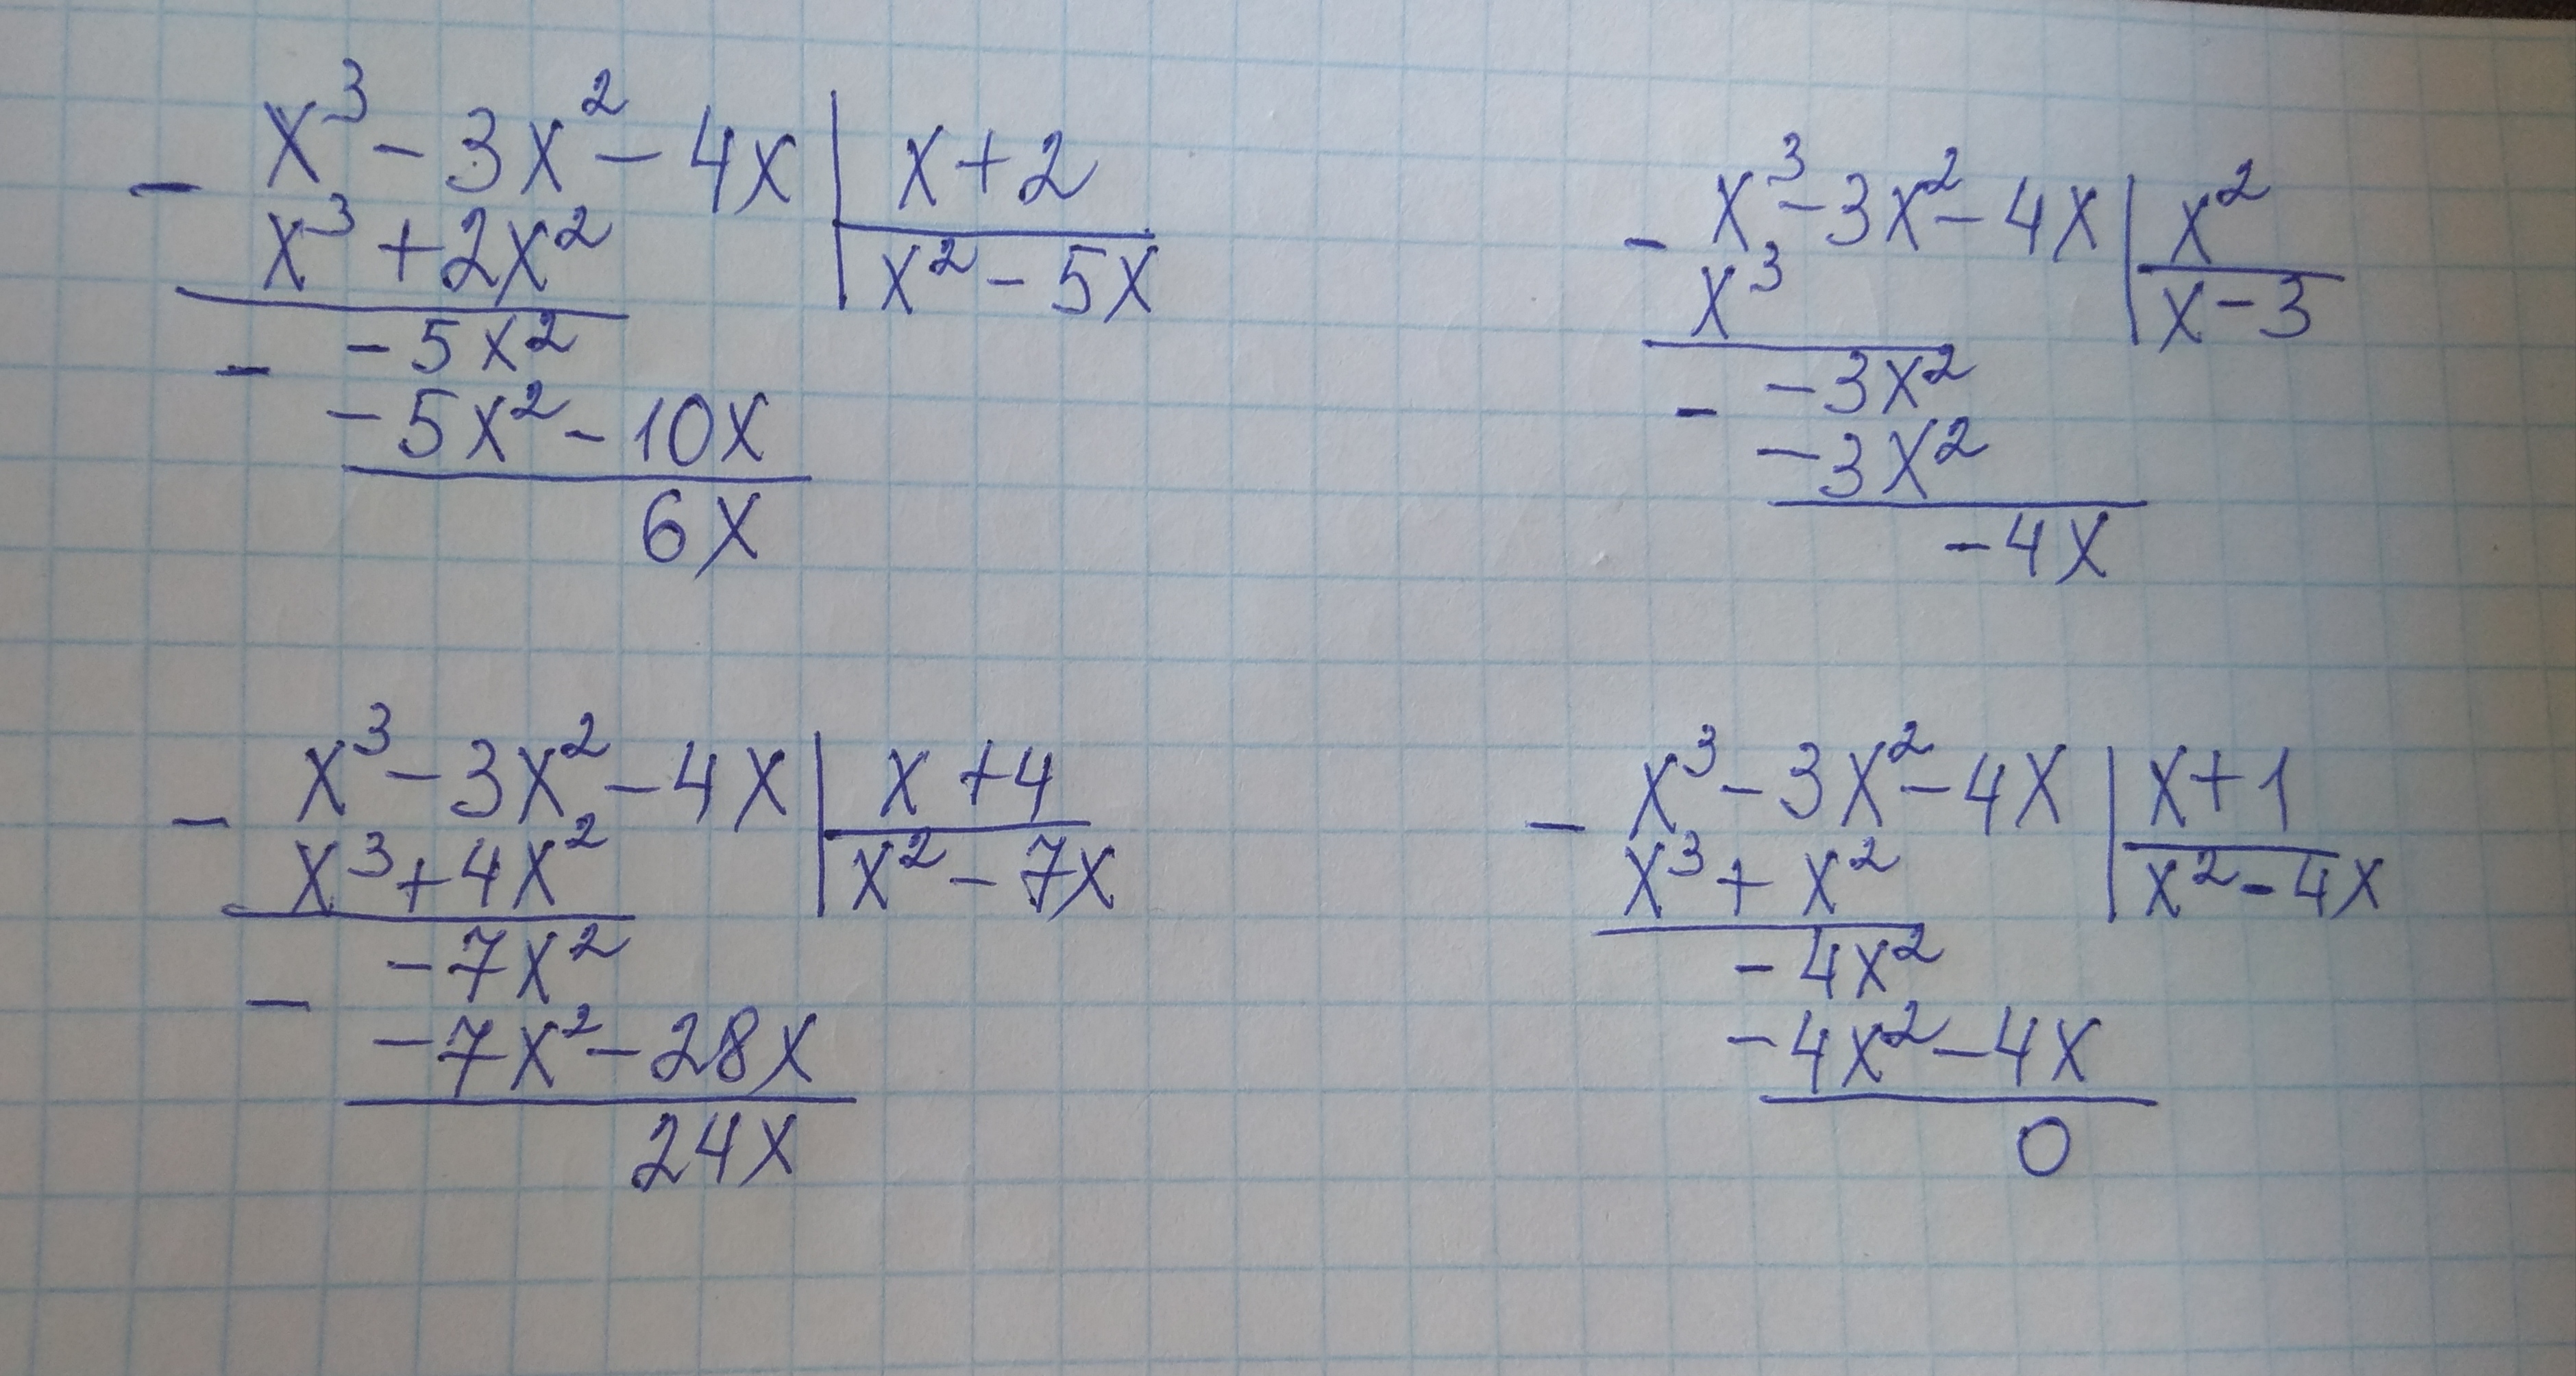 x³ - 3x² - 4x | x + 2
-
x³ + 2x² | x² - 5x
- 5x²
-
- 5x² - 10x
6x
x³ - 3x² - 4x | x²
-
x³ | x - 3
- 3x²
-
- 3x²
- 4x
x³ - 3x² - 4x | x + 4
-
x³ + 4x² | x² - 7x
- 7x²
-
- 7x² - 28x
24x
x³ - 3x² - 4x | x + 1
-
x³ + x² | x² - 4x
- 4x²
- 4x² - 4x
0